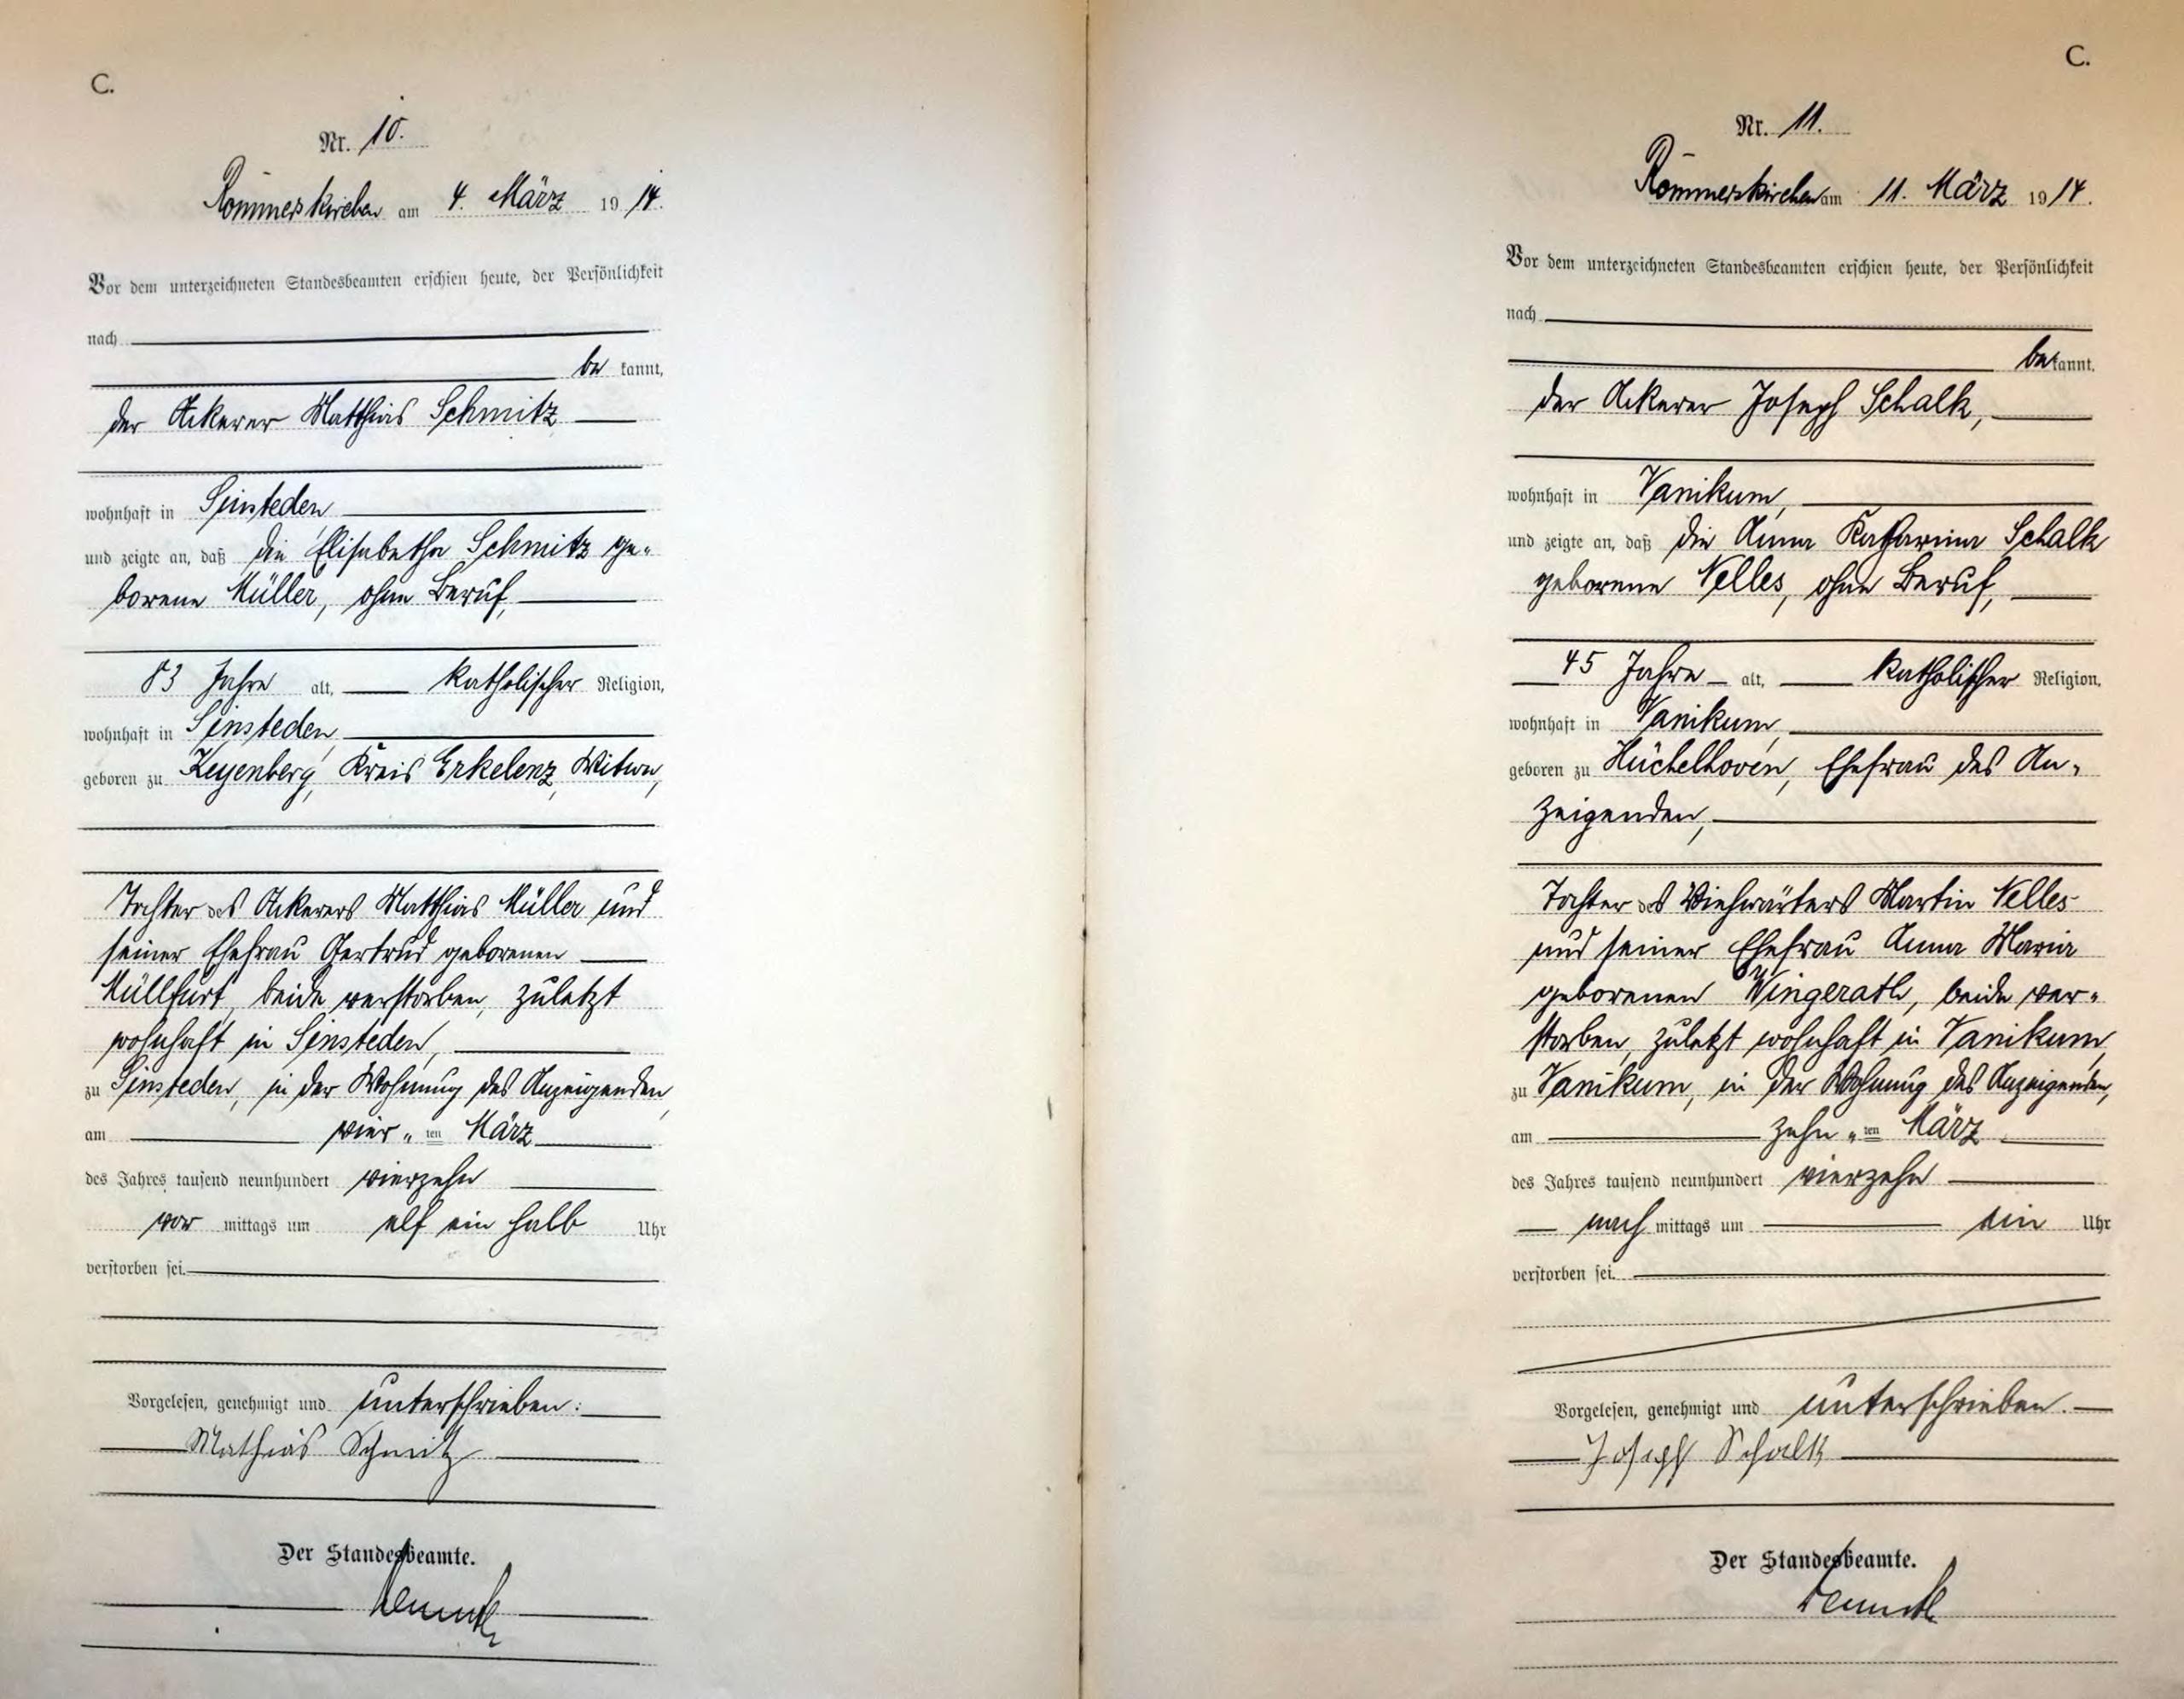 C.
Nr. 10.
Rommerskirchen am 4. März 1914.
Vor dem unterzeichneten Standesbeamten erschien heute, der Persönlichkeit
nach
be kannt,
der Ackerer Matthias Schmitz
wohnhaft in Sinsteden
und zeigte an, daß die Elisabetha Schmitz ge-
borene Müller, ohne Beruf,
83 Jahre alt, katholischer Religion,
wohnhaft in Sinsteden,
geboren zu Keyenberg, Kreis Erkelenz, Witwe,
Tochter des Ackerers Matthias Müller und
seiner Ehefrau Gertrud geborenen
Müllfurt, beide verstorben, zuletzt
wohnhaft in Sinsteden,
zu Sinsteden, in der Wohnung des Anzeigenden,
am vier-ten März
des Jahres tausend neunhundert vierzehn
vor mittags um elf ein halb Uhr
verstorben sei.
Vorgelesen, genehmigt und unterschrieben:
Mathias Schmitz
Der Standesbeamte.
C.
Nr. 11.
Rommerskirchen am 11. März 1914.
Vor dem unterzeichneten Standesbeamten erschien heute, der Persönlichkeit
nach
bekannt,
der Ackerer Joseph Schalk,
wohnhaft in Vanikum,
und zeigte an, daß die Anna Katharina Schalk
geborene Nelles, ohne Beruf,
45 Jahre alt, katholischer Religion,
wohnhaft in Vanikum,
geboren zu Hüchelhoven, Ehefrau des An-
zeigenden,
Tochter des Viehwärters Martin Nelles
und seiner Ehefrau Anna Maria
geborenen Wingerath, beide ver-
storben, zuletzt wohnhaft in Vanikum,
zu Vanikum, in der Wohnung des Anzeigenden,
am zehn-ten März
des Jahres tausend neunhundert vierzehn
nach mittags um ein Uhr
verstorben sei.
Vorgelesen, genehmigt und unterschrieben.
Joseph Schalk
Der Standesbeamte.